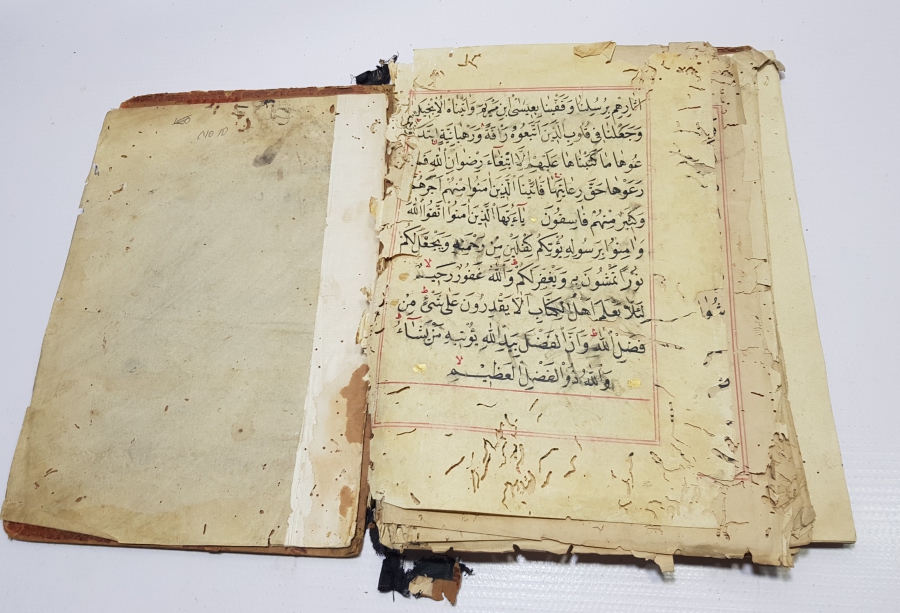 No 10
اثارهم برسلنا وقفينا بعيسى ابن مريم واتيناه الانجيل
وجعلنا في قلوب الذين اتبعوه رافة ورهبانية ابتد
عوها ما كتبناها عليهم الا ابتغاء رضوان الله فما
رعوها حق رعايتها فاتينا الذين امنوا منهم اجرهم
وكثير منهم فاسقون ياءيها الذين امنوا اتقوا الله
وامنوا برسوله يؤتكم كفلين من رحمته ويجعل لكم
نورا تمشون به ويغفر لكم والله غفور رحيم
لئلا يعلم اهل الكتاب الا يقدرون على شئ من
فضل الله وان الفضل بيد الله يؤتيه من يشاء
والله ذو الفضل العظيم